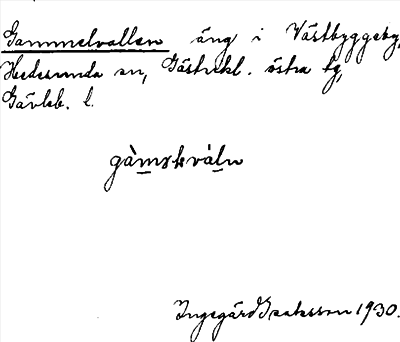 Gammelvallen äng i Västbyggeby,
Hedesunda sn, Gästrikl. östra tg,
Gävleb. l.
gàmskvàln
Ingegärd Isaksson 1930.